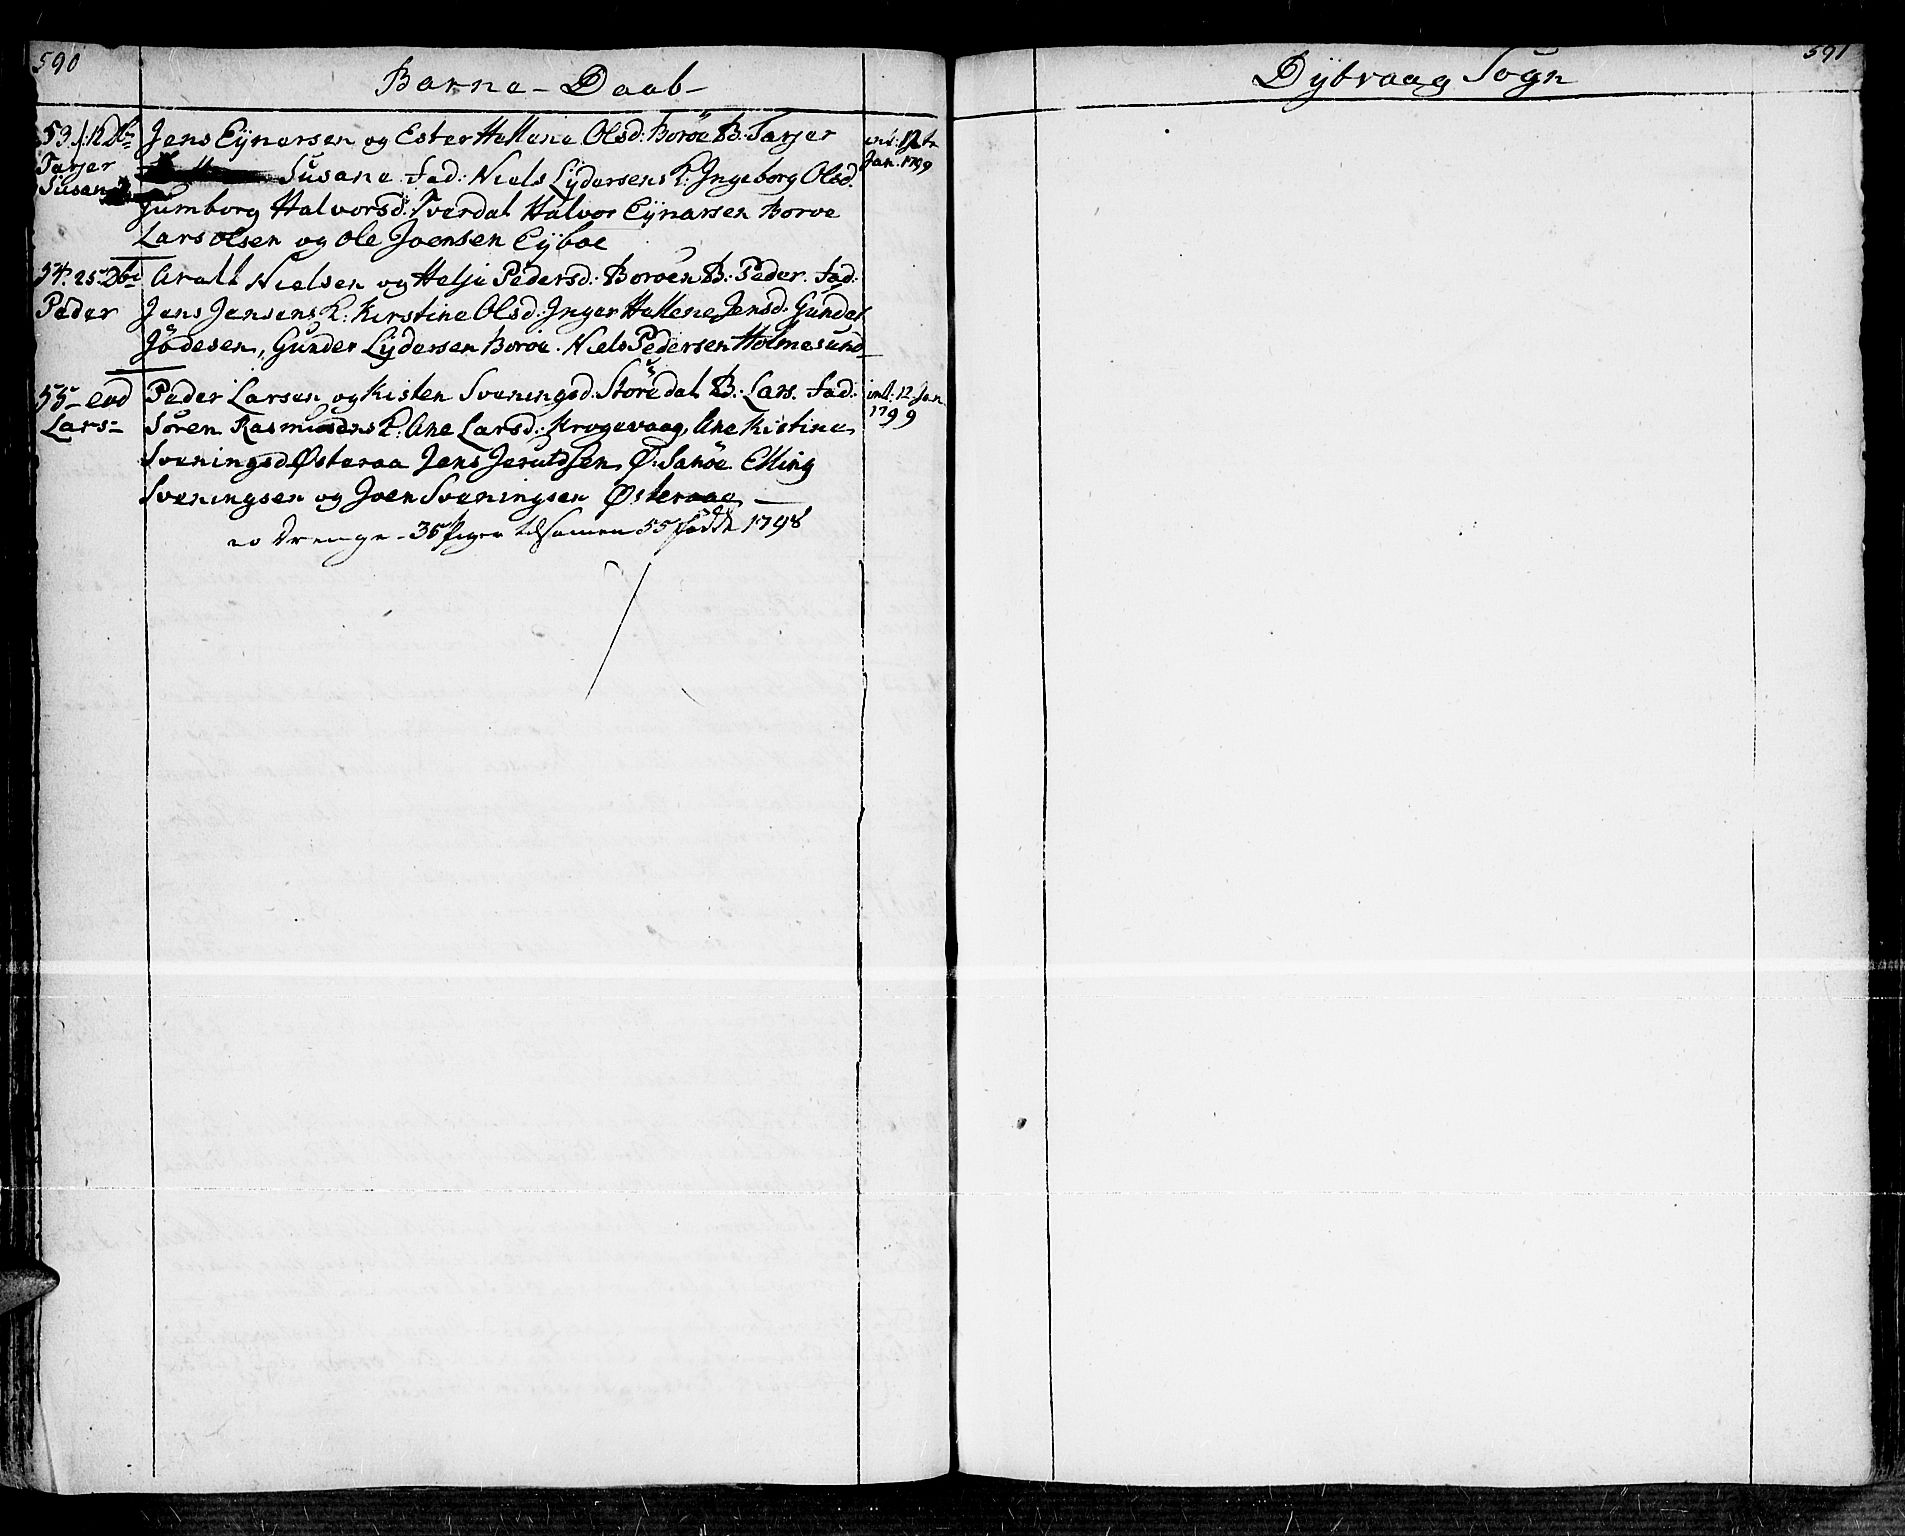 590
Barne-Daab-
53. 12 Xbr
Tarjer
Susane
Jens Eÿnersen og Ester Hellene Olsd: Boröe B: Tarjer
Susane. fad: Niels Lÿdersens K: Ingeborg Olsd.
Gumborg Halvorsd: Tverdal Halvor Eÿnarsen Boroe
Lars Olsen og Ole Joensen Eÿboe
Jan. 1799
54. 25 Xbr
Peder
Aralt Nielsen og Helje Pedersd: Boroen B: Peder. fad:
Jens Jensens K: Kirstine Olsd: Inger Hellene Jensd. Gunder
Jödesen, Gunder Lÿdersen Boröe. Niels Pedersen Holmesund
55- eod
Lars-
Peder Larsen og Kisten Sveningsd: Storedal B: Lars. fad:
Sören Rasmusens K: Ane Larsd: Krogevaag, Ane Kistine
Sveningsd Østeraa Jens Jerulfsen Ø: Sanöe Elling
Sveningsen og Joen Sveningsen Østeraaa
intr: 12 Jan.
1799
20 Drenge - 35 Piger tilsamen 55 fødde 1798
Dÿbvaag Sogn
591